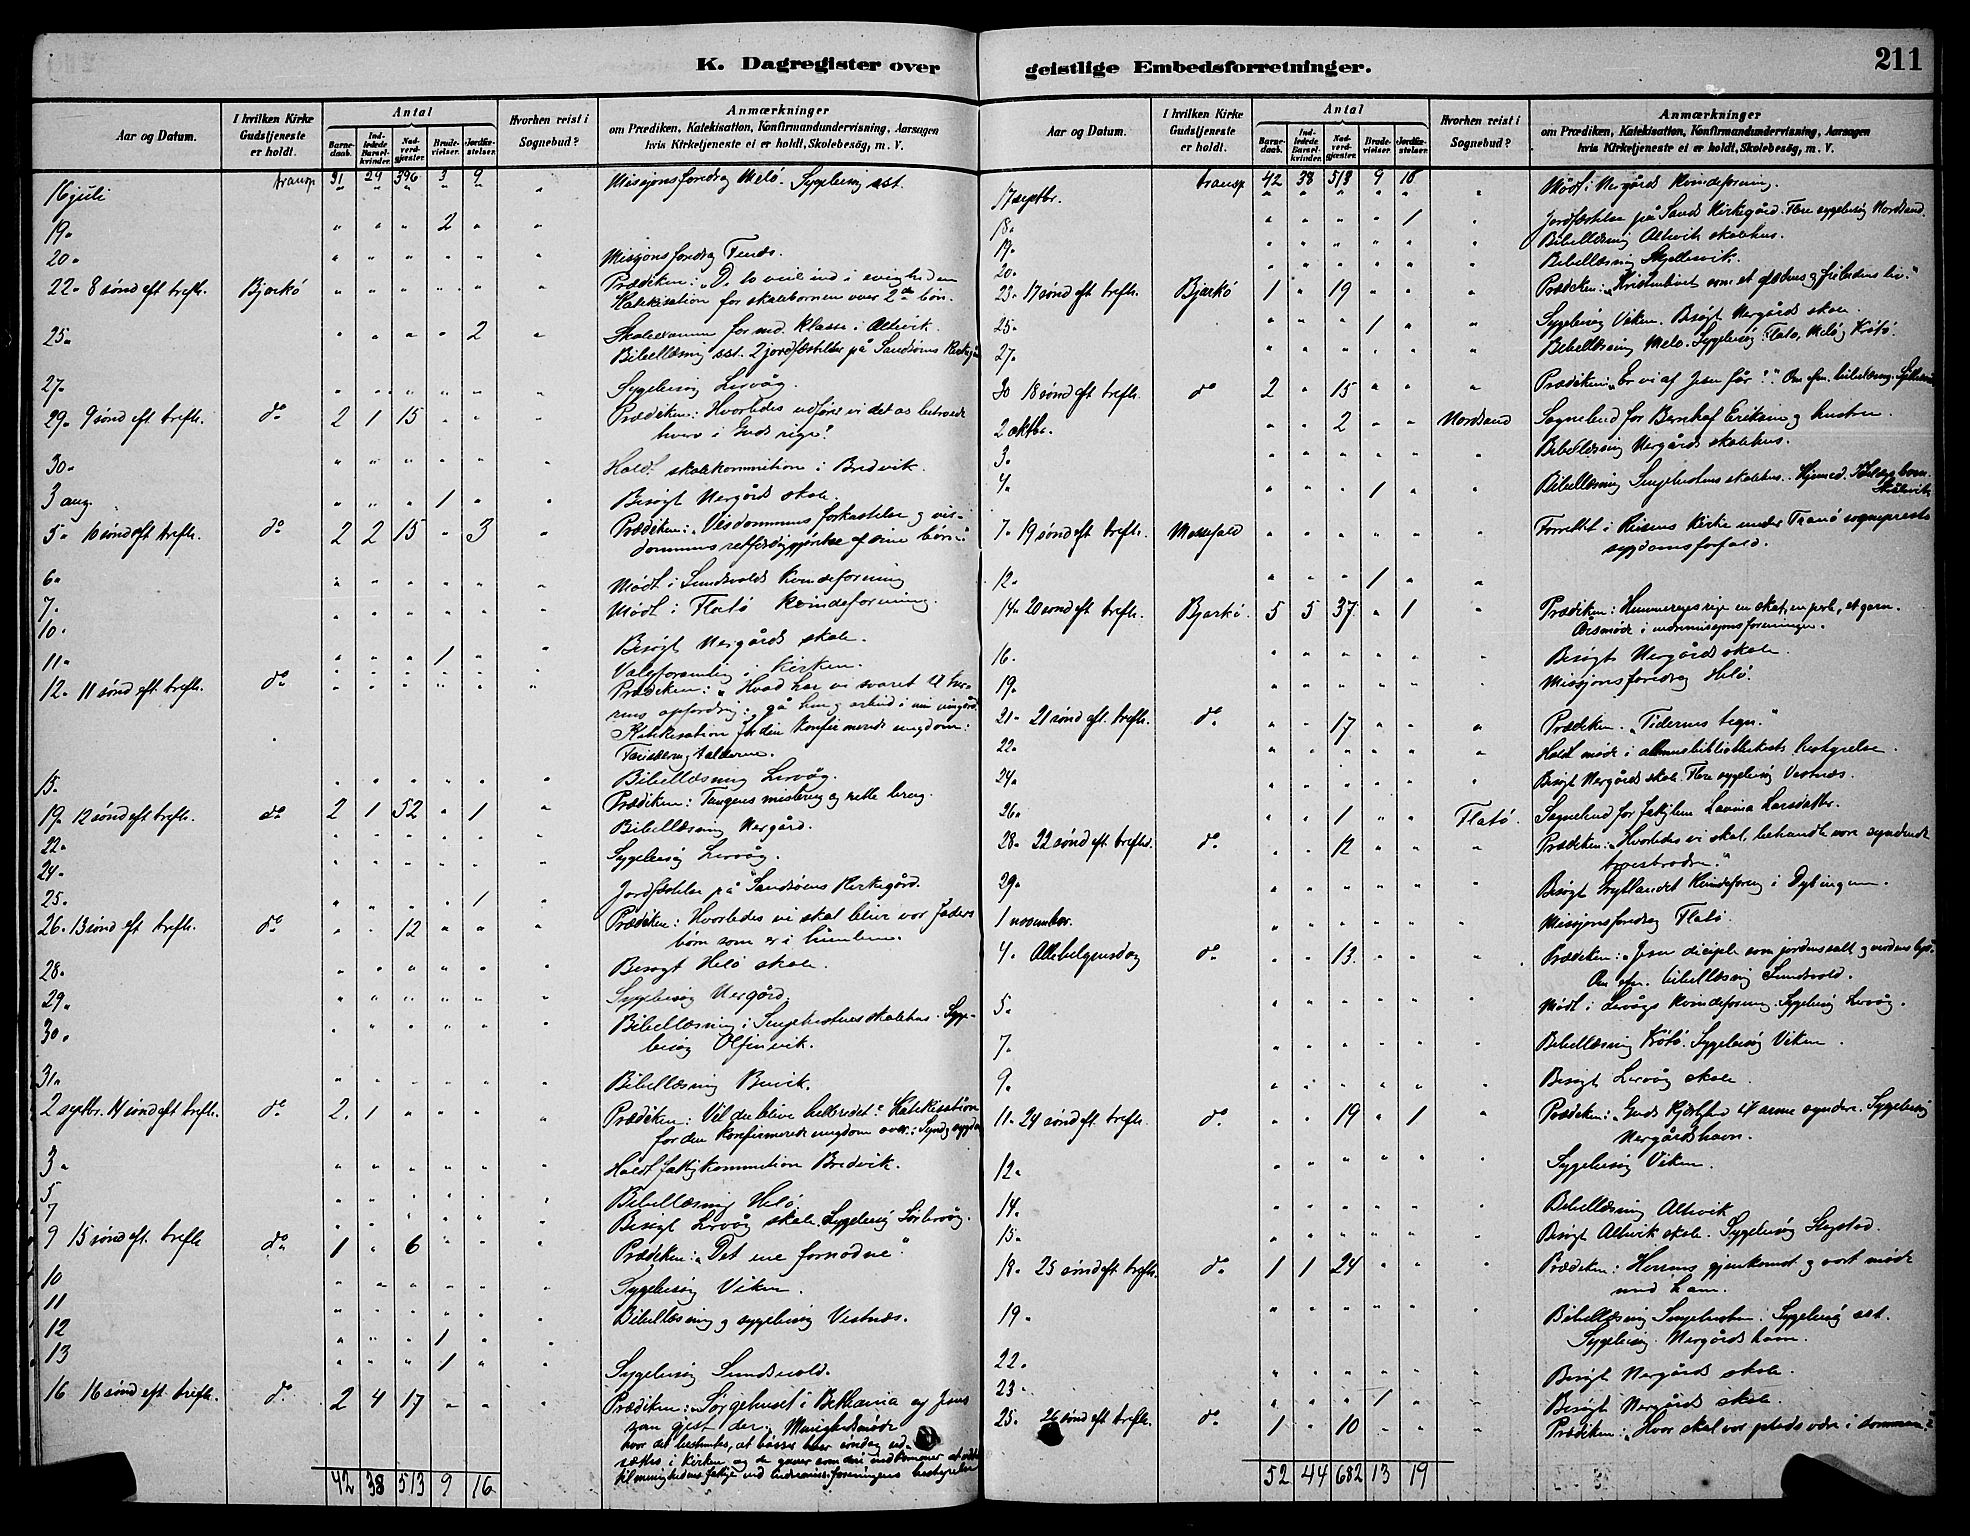 K. Dagregister over
geistlige Embedsforretninger.
211
Aar og Datum.
I hvilken Kirke Gudstjeneste er holdt.
Antal
Barnedaab.
Indledede Barselkvinder.
Nadverdgjæster.
Brudevielser.
Jordfæstelser.
Hvorhen reist i Sognebud?
Anmærkninger
om Prædiken, Katekisation, Konfirmandundervisning, Aarsagen
hvis Kirketjeneste ei er holdt, Skolebesög, m. V.
transp 31 29 396 3 9
16 juli " " " " " " Missjonsforedrag Melö. Sygebesøg sst.
19" " " " 2 " "
20" " " " " " " Missjonsforedrag Tenes.
22" 8 sønd eft trefh. Bjarkö " " " " " " Prædiken:
Katekisation for skolebørnene over 2den bøn.
25" " " " " 2 " Skoleexamen for nd. klasse i Altevik.
Bibellæsning sst. 2 jordfæstelser på Sandsøens Kirkegård
27" " " " " " " Sygebesøg Lervåg.
29" 9 sønd eft trefh. do 2 1 15 " " " Prædiken: Hvorledes udfører vi det os betroede
hverv i Guds rige?
30" " " " " " " Holdt skolekommission i Bredvik.
3 aug. " " " 1 " " Besøgt Nergårds skole.
5" 10 sønd eft trefh. do 2 2 15 " 3 " Prædiken: "Visdommens forkastelse og vis-
dommens retfærdiggjørelse af sine børn."
6" " " " " " " Mødt i Sundsvolds kvindeforening
7" " " " " " " Mødt i Flatö kvindeforening.
10" " " " " " " Besøgt Nergårds skole.
11" " " " 1 " " Valgforsamling i Kirken.
12" 11 sønd eft trefh. do " " " " " " Prædiken: "Hvad har vi svaret til her-
rens opfordring: gå hen og arbeid i min vingård
Katekisation for den konfirmerede ungdom:
Farisæeren og tolderne.
15" " " " " " " Bibellæsning Lervåg.
19" 12 sønd eft trefh. do 2 1 52 " 1 " Prædiken: Tungens misbrug og rette brug.
22" " " " " " " Bibellæsning Nergård.
24" " " " " " " Sygebesøg Lervåg.
25" " " " " 1 " Jordfæstelse på Sandsøens Kirkegård.
26" 13 sønd eft trefh. do " " 12 " " " Prædiken: Hvorledes vi skal blive vor Faders
børn som er i himlene.
28" " " " " " " Besøgt Helö skole.
29" " " " " " " Sygebesøg Nergård.
30" " " " " " " Bibellæsning i Senjehestens skolehus. Syge-
besøg
31" " " " " " " Bibellæsning
2 septbr. 14 sønd eft trefh. do 2 1 " " " " Prædiken: Vil du blive helbredet? Katekisation
for den konfirmerede ungdom over: Synd og sygdom
3" " " " " " " Holdt fattigkommission Bredvik.
5 " " " " " " Bibellæsning Helö
7 " " " " " " Besøgt Lervåg skole. Sygebesøg Sörlervåg.
9 15 sønd eft. trefh do 1 " 6 " " " Prædiken: "Det ene fornødne".
10 " " " " " " Sygebesøg Viken.
11 " " " " " " Bibellæsning og sygebesøg Vestnæs.
12 " " " 1 " "
13 " " " 1 " " Sygebesøg Sundsvold.
16 16 sønd eft. trefh. do 2 4 17 " " " Prædiken: "Sørgehuset i Bethania og Jesus
som gjest der. Menighedsmöde
hvor det bestemtes, at bösser hver söndag ud-
sættes i Kirken og de gaver som deri indkommer
til menighedens fattige ved indremisjonsforeningens bestyrelse
42 38 513 9 16
Aar og Datum.
I hvilken Kirke Gudstjeneste er holdt.
Antal
Barnedaab.
Indledede Barselkvinder.
Nadverdgjæster.
Brudevielser.
Jordfæstelser.
Hvorhen reist i Sognebud?
Anmærkninger
om Prædiken, Katekisation, Konfirmandundervisning, Aarsagen
hvis Kirketjeneste ei er holdt, Skolebesög, m. V.
transp 42 38 513 9 16
17 septbr. " " " " " " Mødt i Nergårds kvindeforening.
18" " " " " 1 " Jordfæstelse på Sands Kirkegård. Flere sygebesøg Nordsand.
19" " " " " " " Bibellæsning Altevik skolehus.
20" " " " " " " Bibellæsning Skjellesvik.
23" 17 sønd eft trefh. Bjarkö 1 " 19 " " " Prædiken: "Kristenlivet som et glædens og frihedens liv."
25" " " " 1 " " Sygebesøg Viken. Besøgt Nergårds skole.
27" " " " " " " Bibellæsning Melö. Sygebesøg: Flatö, Melö og Krötö.
30 18 sønd eft trefh. do 2 " 15 " " " Prædiken: "Er vi af Jesu får?" Om efm. bibellæsning
2 oktbr. " " 2 " " Nordsand Sognebud for Bernhof Eriksen og hustru.
3" " " " " " " Bibellæsning Nergårds skolehus.
4" " " " 1 " " Bibellæsning Senjehestens skolehus.
7" 19 sønd eft trefh. Messefald " " " " " " Forrettet i Reisens Kirke under Tranö sogneprests
sygdomsforfald.
12" " " " 1 " "
14" 20 sønd eft trefh. Bjarkö. 5 5 37 " 1 " Prædiken: Himmeriges rige en skat, en perle, et garn.
Årsmøde i indremisjonsforeningen.
16. " " " " " " Besøgt Nergårds skole.
19" " " " " " " Missjonsforedrag Helö.
21" 21 sønd eft. trefh. do " " 17 " " " Prædiken. "Tidernes tegn."
22" " " " " " " Holdt møde i almuebibliothekets bestyrelse.
24" " " " " " " Besøgt Nergårds skole. Flere sygebesøg Vestnæs.
26" " " 1 " " Flatö. Sognebud for fattiglem Lavina Larsdatter.
28" 22 sønd eft trefh. do " " 12 " " " Prædiken: "Hvorledes vi skal behandle vore syndende
troesbrødre."
29" " " " " " " Besøgt Kvindeforening i Dybingen.
1 november. " " " " " " Missjonsforedrag Flatö.
4" Allehelgensdag do " " 13 " " " Prædiken: "Jesu disciple som jordens salt og verdens lys."
Om efm. bibellæsning Sundsvold.
5" " " " " " " Mødt i Lervågs kvindeforening. Sygebesøg Lervåg.
7" " " " " " " Bibellæsning Krötö. Sygebesøg Viken.
9" " " " " " " Besøgt Lervåg skole.
11" 24 sønd eft. trefh. do " " 19 " 1 " Prædiken: "Guds kjærlighed til arme syndere. Sygebesøg
Nergårdshavn.
12" " " " " " " Sygebesøg Viken.
14" " " " " " " Bibellæsning Altevik
15" " " " " " " Besøgt Altevik skole. Sygebesøg
18" 25 sønd eft trefh. do 1 1 24 " " " Prædiken: Herrens gjenkomst og vort møde
med ham.
19" " " " " " " Bibellæsning Senjehesten. Sygebesøg sst.
Sygebesøg Nergårdshavn.
22" " " " " " " Besøgt Nergårds skole.
23" " " " 1 " " Besøgt Nergårds skole.
25" 26 sønd eft trefh. do 1 " 10 " " " Prædiken: "Hvor skal vor plads være i dommen?"
52 44 682 13 19